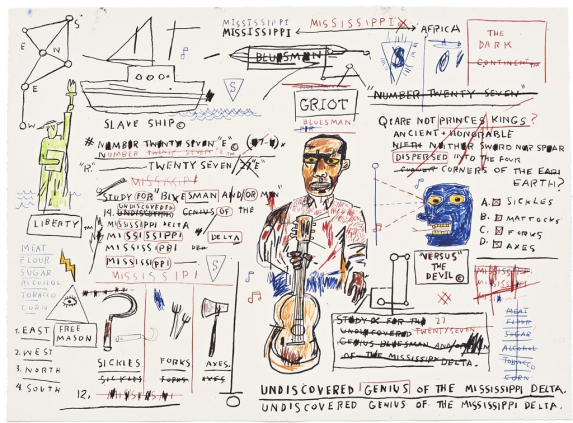 S
E
N
E
W
S
SLAVE SHIP©
MISSISSIPPI
MISSISSIPPI
MISSISSIPPI
AFRICA
BLUESMAN
THE
DARK
CONTINENT
GRIOT
BLUESMAN
"NUMBER TWENTY SEVEN"
# NUMBER TWENTY SEVEN "E"©
NUMBER TWENTY SEVEN "E"
"R."
TWENTY SEVEN
MISSISSIPPI
STUDY FOR BLUESMAN AND/OR MAN"
UNDISCOVERED
14. UNDISCOVERED GENIUS OF THE
MISSISSIPPI DELTA
MISSISSIPPI
DELTA
MISSISSIPPI DEL
MISSISSIPPI
MISSISSIPPI
LIBERTY
MEAT
FLOUR
SUGAR
ALCOHOL
TOBACCO
CORN
1. EAST
FREE
MASON
2. WEST
3. NORTH
4. SOUTH
SICKLES
FORKS
AXES.
SICKLES
FORKS
AXES
12,
Q: ARE NOT PRINCES KINGS?
ANCIENT + HONORABLE
NEITHER SWORD NOR SPEAR
DISPERSED INTO THE FOUR
CORNERS OF THE EAR
EARTH?
A. SICKLES
B. MATTOCKS
C. FORKS
D. AXES
"VERSUS"
THE
DEVIL©
MISSISSIPPI
MEAT
FLOUR
SUGAR
ALCOHOL
TOBACCO
CORN
STUDY FOR THE 27
UNDISCOVERED TWENTYSEVEN
GENIUS BLUESMAN AND/OR MAN
OF THE MISSISSIPPI DELTA.
UNDISCOVERED GENIUS OF THE MISSISSIPPI DELTA.
UNDISCOVERED GENIUS OF THE MISSISSIPPI DELTA.